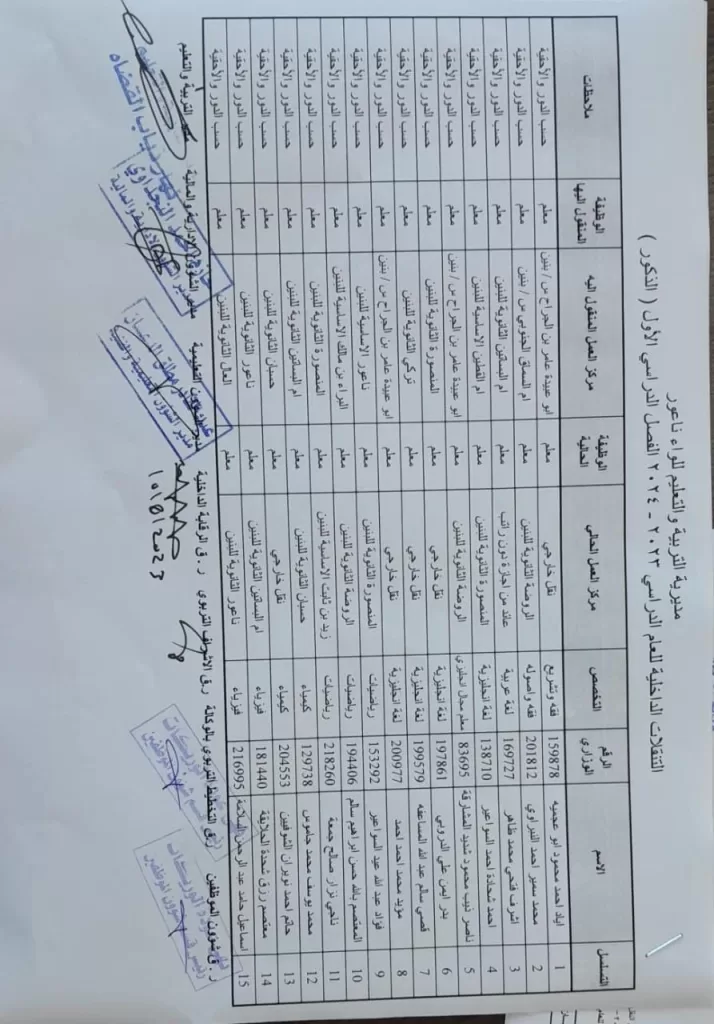 مديرية التربية والتعليم للواء ناعور
التنقلات الداخلية للعام الدراسي ٢٠٢٣ - ٢٠٢٤ الفصل الدراسي الأول ( الذكور )
التسلسل الاسم الرقم الوزاري التخصص مركز العمل الحالي الوظيفة الحالية مركز العمل المنقول اليه الوظيفة المنقول اليها ملاحظات
1 اياد احمد محمود ابو عجميه 159878 فقه وتشريع نقل خارجي معلم ابو عبيدة عامر بن الجراح س / بنين معلم حسب الدور والأحقية
2 محمد سمير احمد النبراوي 201812 فقه واصوله الروضة الثانوية للبنين معلم ام السماق الجنوبي س / بنين معلم حسب الدور والأحقية
3 اشرف فتحي محمد طاهر 169727 لغة عربية عائد من اجازة دون راتب معلم ام البساتين الثانوية للبنين معلم حسب الدور والأحقية
4 احمد شحادة احمد السواعير 138710 لغة انجليزية المنصورة الثانوية للبنين معلم ام القطين الاساسية للبنين معلم حسب الدور والأحقية
5 ناصر ذيب محمود شديد المشارقة 83695 معلم مجال انجليزي الروضة الثانوية للبنين معلم ابو عبيدة عامر بن الجراح س / بنين معلم حسب الدور والأحقية
6 بدر ايمن علي الدروبي 197861 لغة انجليزية نقل خارجي معلم المنصورة الثانوية للبنين معلم حسب الدور والأحقية
7 قصي سالم عبد الله المساعفه 199579 لغة انجليزية نقل خارجي معلم تركي الثانوية للبنين معلم حسب الدور والأحقية
8 مزيد محمد احمد احمد 200977 لغة انجليزية نقل خارجي معلم ابو عبيدة عامر بن الجراح س / بنين معلم حسب الدور والأحقية
9 فؤاد عبد الله عبد السواعير 153292 رياضيات المنصورة الثانوية للبنين معلم ناعور الاساسية للبنين معلم حسب الدور والأحقية
10 المعتصم بالله حسن ابراهيم سالم 194406 رياضيات الروضة الثانوية للبنين معلم البراء بن مالك الاساسية للبنين معلم حسب الدور والأحقية
11 ناجي نزار صالح جمعة 218260 رياضيات زيد بن ثابت الاساسية للبنين معلم المنصورة الثانوية للبنين معلم حسب الدور والأحقية
12 محمد يوسف محمد جاموس 129738 كيمياء حسبان الثانوية للبنين معلم ام البساتين الثانوية للبنين معلم حسب الدور والأحقية
13 حاتم احمد نويران الشوفيين 204553 كيمياء نقل خارجي معلم حسبان الثانوية للبنين معلم حسب الدور والأحقية
14 معتصم رزق شحدة الحلايقة 181440 فيزياء ام البساتين الثانوية للبنين معلم ناعور الثانوية للبنين معلم حسب الدور والأحقية
15 اسماعيل حامد عبد الرحمن السلامة 216995 فيزياء ناعور الثانوية للبنين معلم العال الثانوية للبنين معلم حسب الدور والأحقية
ر . ق شؤون الموظفين ر.ق التخطيط التربوي بالوكالة ر.ق الاشراف التربوي ر . ق الرقابة الداخلية مدير الشؤون التعليمية مدير الشؤون الادارية والمالية مدير التربية والتعليم
10/8/2023
مدير الشؤون التعليمية والفنية